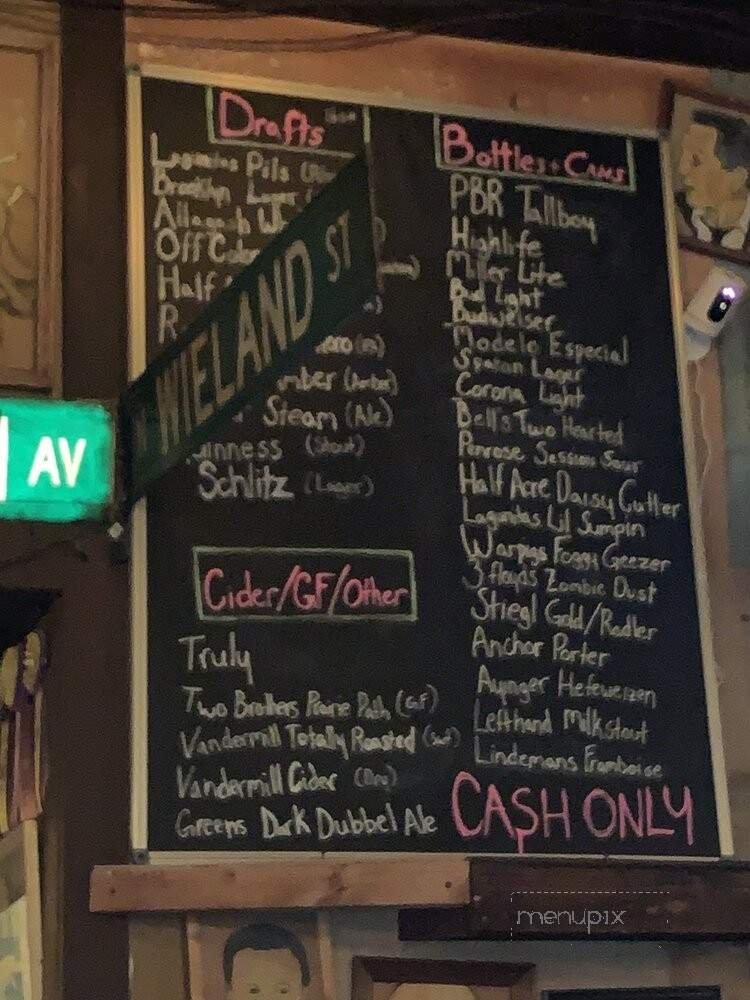 Drafts
Lagunitas Pils
Brooklyn Lager
Allagash
Off Color
Half
R
WIELAND ST
AV
(Amber)
Steam (Ale)
Guinness (Stout)
Schlitz (Lager)
Cider/GF/Other
Truly
Two Brothers Prairie Path (GF)
Vandermill Totally Roasted
Vandermill Cider (Dry)
Greens Dark Dubbel Ale
Bottles + Cans
PBR Tallboy
Highlife
Miller Lite
Bud Light
Budweiser
Modelo Especial
Spacon Lager
Corona Light
Bell's Two Hearted
Penrose Session Sour
Half Acre Daisy Cutter
Lagunitas Lil Sumpin
Warpigs Foggy Geezer
3 Floyds Zombie Dust
Stiegl Gold/Radler
Anchor Porter
Ayinger Hefeweizen
Lefthand Milkstout
Lindemans Framboise
CASH ONLY
menupix